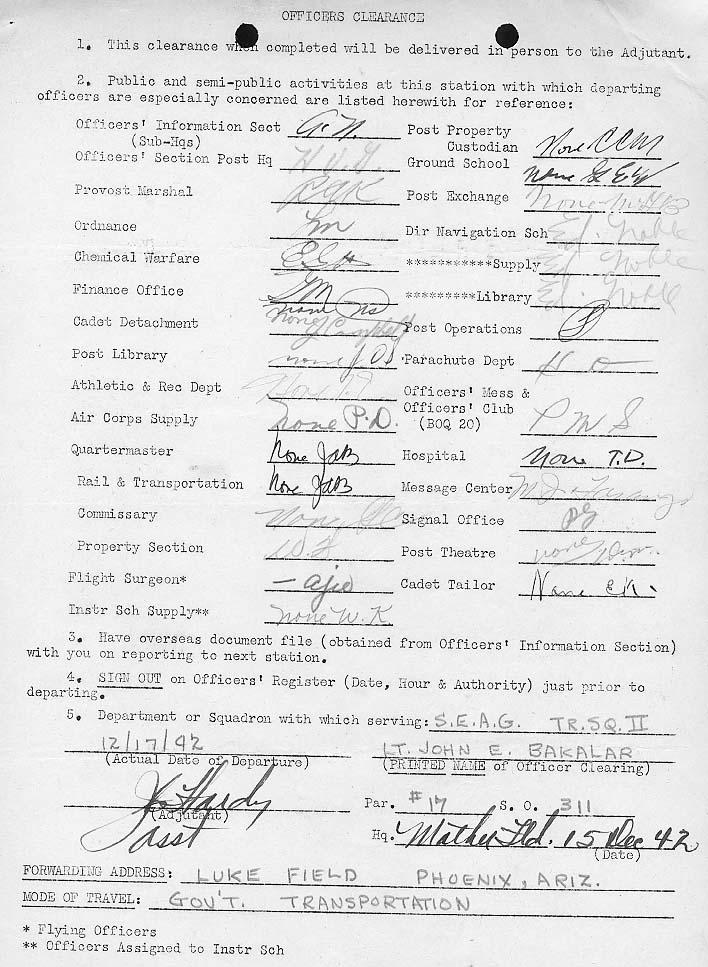 OFFICERS CLEARANCE
1. This clearance when completed will be delivered in person to the Adjutant.
2. Public and semi-public activities at this station with which departing
officers are especially concerned are listed herewith for reference:
Officers' Information Sect
(Sub-Hqs)
Post Property
Custodian None CCM
Officers' Section Post Hq
Ground School None
Provost Marshal
Post Exchange None
Ordnance
Dir Navigation Sch Ed. Noble
Chemical Warfare
***********Supply Ed Noble
Finance Office
*********Library Ed. Noble
Cadet Detachment None Campbell
Post Operations
Post Library none
Parachute Dept H O
Athletic & Rec Dept
Officers' Mess &
Officers' Club
(BOQ 20) P M S
Air Corps Supply None P.D.
Quartermaster None JAB
Hospital None T.D.
Rail & Transportation None JAB
Message Center
Commissary
Signal Office
Property Section
Post Theatre none
Flight Surgeon*
Cadet Tailor None
Instr Sch Supply** None W.K
3. Have overseas document file (obtained from Officers' Information Section)
with you on reporting to next station.
4. SIGN OUT on Officers' Register (Date, Hour & Authority) just prior to
departing.
5. Department or Squadron with which serving: S.E.A.G. TR.SQ. II
12/17/42
(Actual Date of Departure)
LT. JOHN E. BAKALAR
(PRINTED NAME of Officer Clearing)
Hardy
(Adjutant)
Asst
Par. #17 S. O. 311
Hq. Mather Fld. 15 Dec 42
(Date)
FORWARDING ADDRESS: LUKE FIELD PHOENIX, ARIZ.
MODE OF TRAVEL: GOV'T. TRANSPORTATION
* Flying Officers
** Officers Assigned to Instr Sch